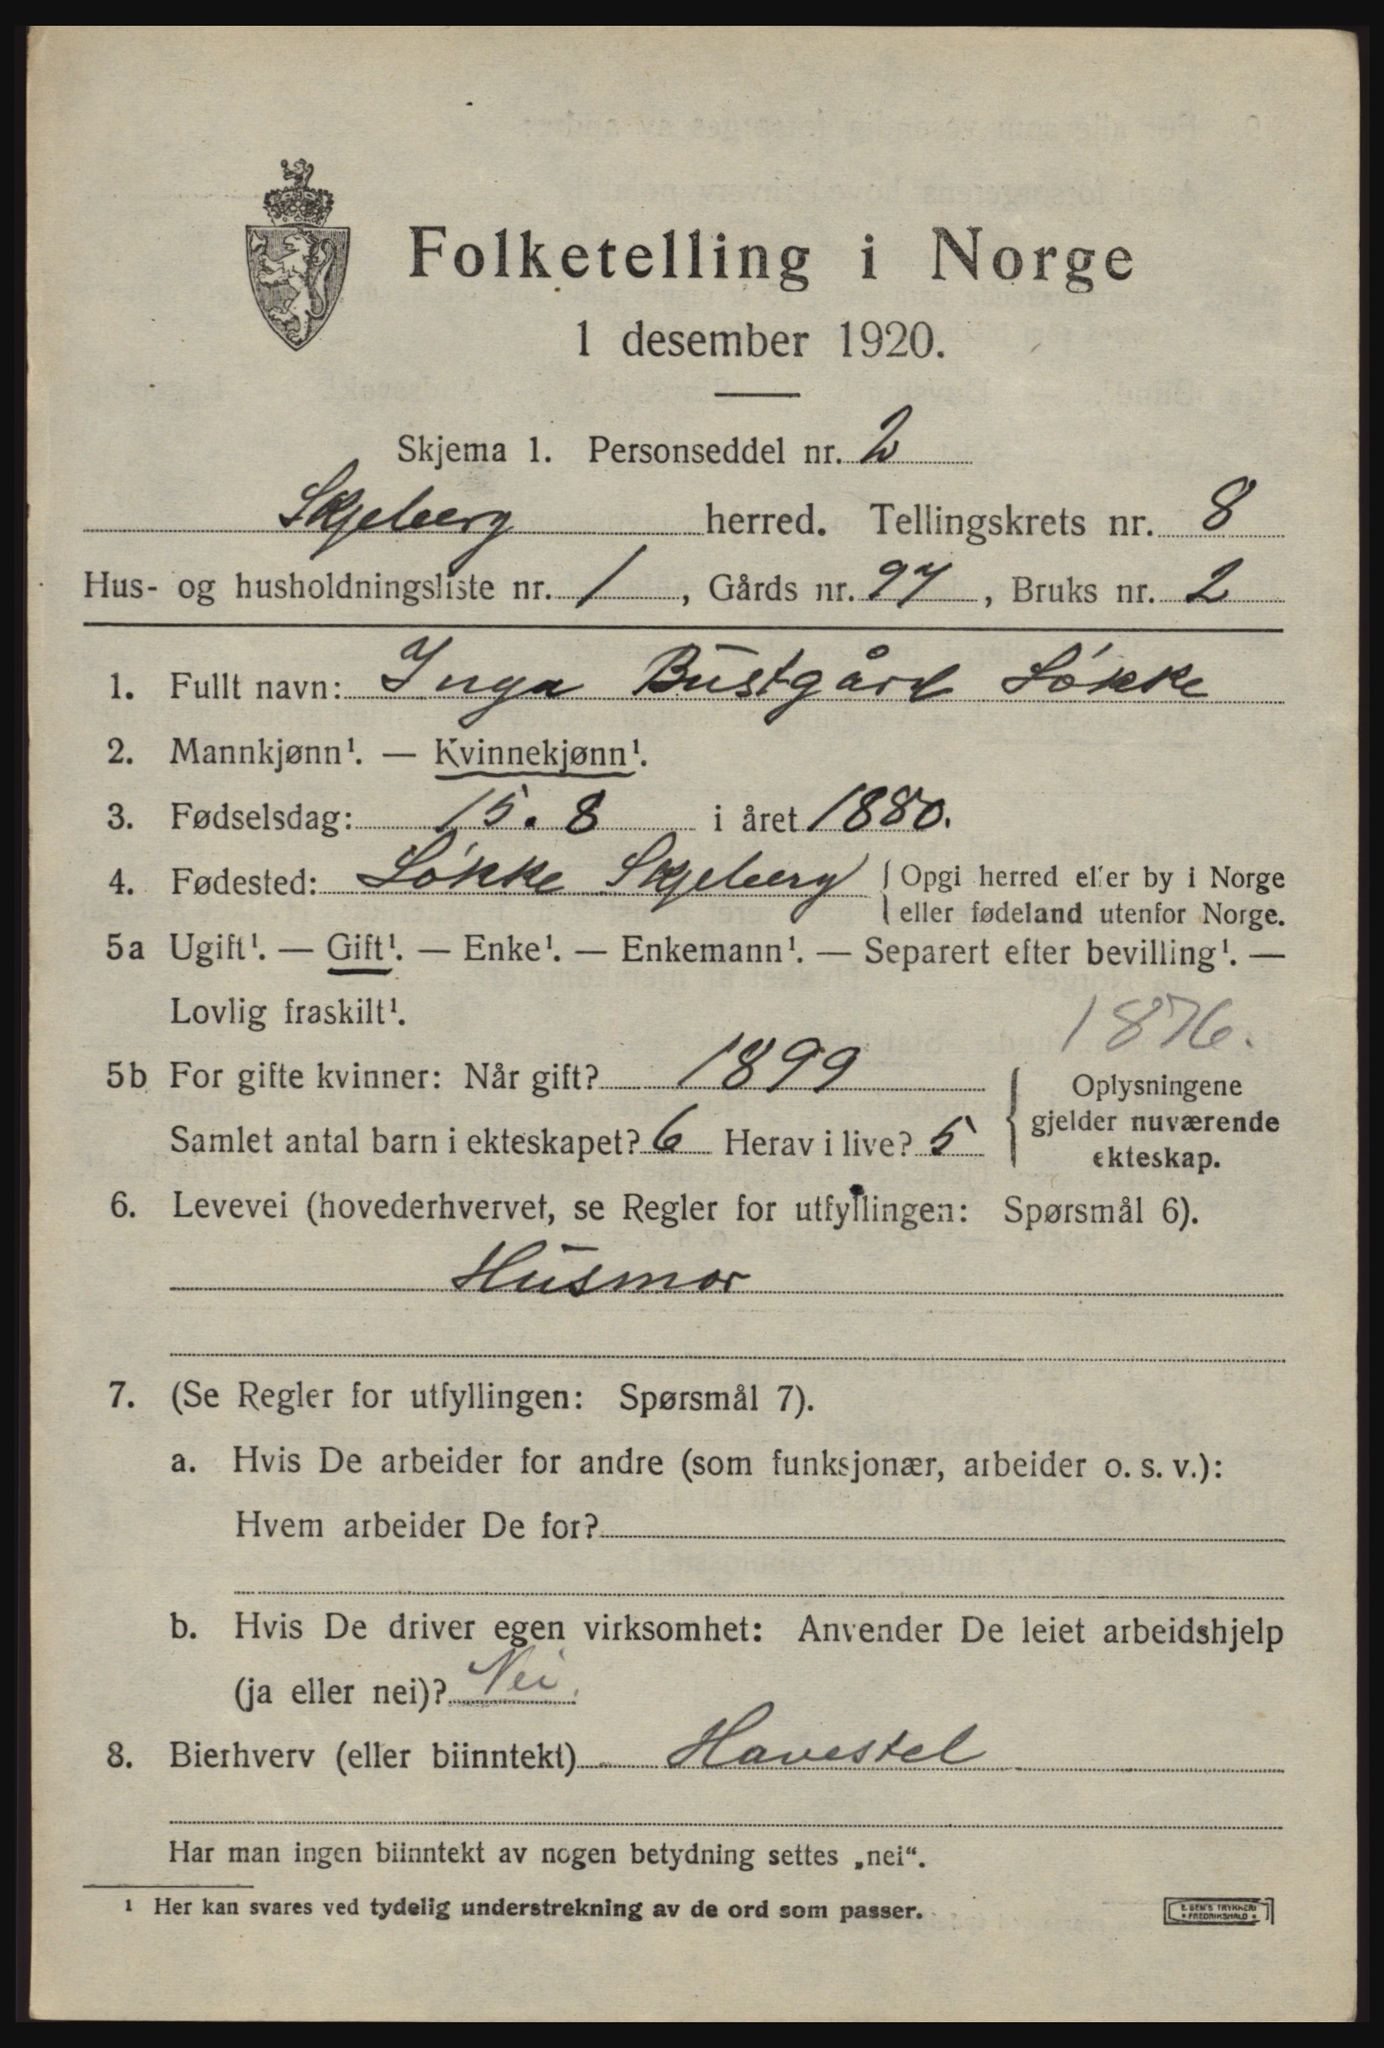 Folketelling i Norge
1 desember 1920.
Skjema 1. Personseddel nr. 2
Skjeberg herred. Tellingskrets nr. 8
Hus- og husholdningsliste nr. 1, Gårds nr. 97, Bruks nr. 2
1. Fullt navn: Inga Bustgård Løkke
2. Mannkjønn¹. — Kvinnekjønn¹.
3. Fødselsdag: 15. 8 i året 1880.
4. Fødested: Løkke Skjeberg { Opgi herred eller by i Norge
eller fødeland utenfor Norge.
5a Ugift¹. — Gift¹. — Enke¹. — Enkemann¹. — Separert efter bevilling¹. —
Lovlig fraskilt¹.
1876.
5b For gifte kvinner: Når gift? 1899
Samlet antal barn i ekteskapet? 6 Herav i live? 5
{ Oplysningene
gjelder nuværende
ekteskap.
6. Levevei (hovederhvervet, se Regler for utfyllingen: Spørsmål 6).
Husmor
7. (Se Regler for utfyllingen: Spørsmål 7).
a. Hvis De arbeider for andre (som funksjonær, arbeider o. s. v.):
Hvem arbeider De for?
b. Hvis De driver egen virksomhet: Anvender De leiet arbeidshjelp
(ja eller nei)? Nei.
8. Bierhverv (eller biinntekt) Havestel
Har man ingen biinntekt av nogen betydning settes „nei“.
¹ Her kan svares ved tydelig understrekning av de ord som passer.
TRYKKERI
FREDRIKSHALD